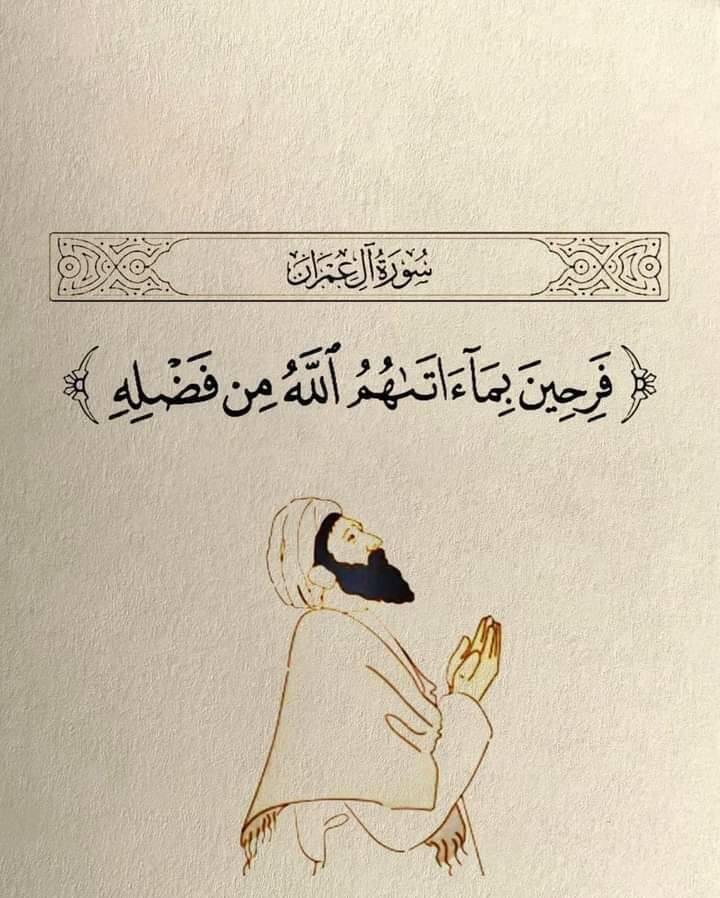 سُورَةُ آلِ عِمْرَانَ
﴿فَرِحِينَ بِمَآ ءَاتَىٰهُمُ ٱللَّهُ مِن فَضْلِهِ﴾